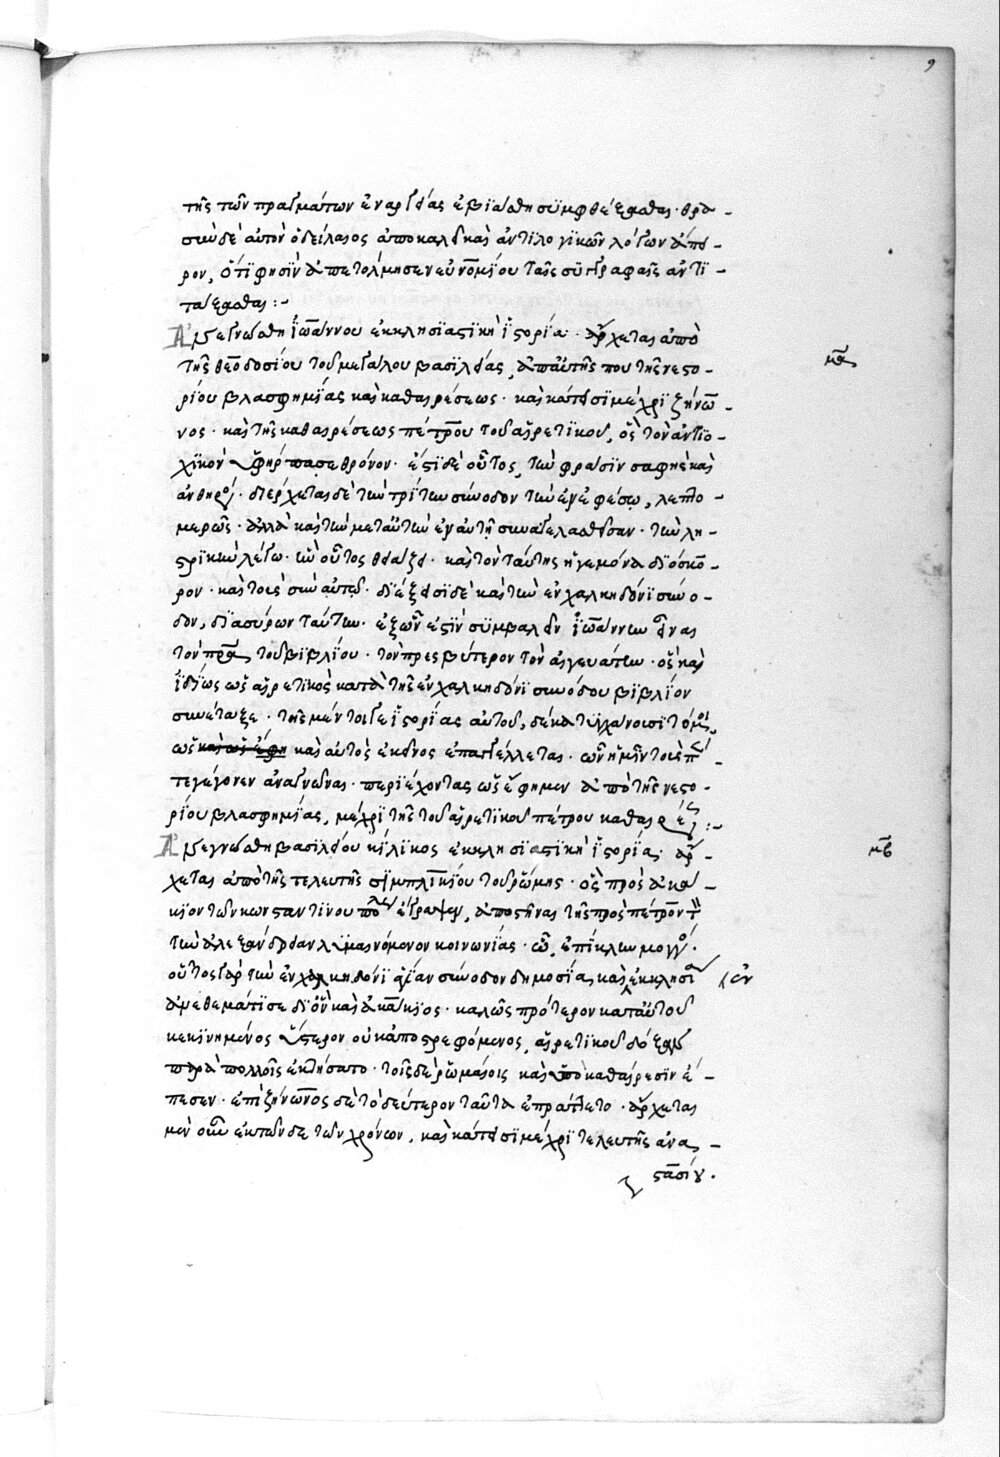 9
τῆς τῶν πραγμάτων ἐναργείας ἐβιάσθη συμφθέγξασθαι· θρα-
σὺν δὲ αὐτὸν ὁ δείλαιος ἀποκαλεῖ καὶ ἀντιλογικῶν λόγων ἄπο-
ρον, ὅτι φησὶν ἀπετόλμησεν εὐνομίου ταῖς συγγραφαῖς ἀντι-
τάξασθαι :-
Ἀνεγνώσθη ἰωάννου ἐκκλησιαστικὴ ἱστορία· ἄρχεται ἀπὸ
μα
τῆς θεοδοσίου τοῦ μεγάλου βασιλείας, ἀπ' αὐτῆς που τῆς νεστο-
ρίου βλασφημίας καὶ καθαιρέσεως· καὶ κάτεισι μέχρι ζήνω-
νος· καὶ τῆς καθαιρέσεως πέτρου τοῦ αἱρετικοῦ, ὃς τὸν ἀντιο-
χικὸν ὑφήρπασε θρόνον· ἔστι δὲ οὗτος τὴν φράσιν σαφὴς καὶ
ἀνθηρός· διέρχεται δὲ τὴν τρίτην σύνοδον τὴν ἐν ἐφέσῳ, λεπτο-
μερῶς· ἀλλὰ καὶ τὴν μετ' αὐτὴν ἐν αὐτῇ συναγελασθεῖσαν· τὴν λη-
στρικὴν λέγω· ἣν οὗτος θειάζει· καὶ τὸν ταύτης ἡγεμόνα διόσκο-
ρον· καὶ τοὺς σὺν αὐτῷ· διέξεισι δὲ καὶ τὴν ἐν χαλκηδόνι σύνο-
δον, διασύρων ταύτην· ἐξ ὧν ἐστὶν συμβαλεῖν ἰωάννην εἶναι
τὸν πρα τοῦ βιβλίου· τὸν πρεσβύτερον τὸν αἰγεάτην· ὃς καὶ
ἰδίως ὡς αἱρετικὸς κατὰ τῆς ἐν χαλκηδόνι συνόδου βιβλίον
συνέταξε· τῆς μέντοι γε ἱστορίας αὐτοῦ, δέκα τυγχάνουσι τόμοι,
ὡς καὶ ὡς ἔφη καὶ αὐτὸς ἐκεῖνος ἐπαγγέλλεται· ὧν ἡμῖν τοὺς πέ
τε γέγονεν ἀναγνῶναι· περιέχοντας ὡς ἔφημεν ἀπὸ τῆς νεστο-
ρίου βλασφημίας, μέχρι τῆς τοῦ αἱρετικοῦ πέτρου καθαιρέσ :-
Ἀνεγνώσθη βασιλείου κίλικος ἐκκλησιαστικὴ ἱστορία· ἄρ-
μβ
χεται ἀπὸ τῆς τελευτῆς σιμπλικίου τοῦ ῥώμης· ὃς πρὸς ἀκά-
κιον τῶν κωνσταντίνου πόλεως ἔγραψεν, ἀποστῆναι τῆς πρὸς πέτρον τ
τὴν ἀλεξάνδρειαν λυμαινόμενον κοινωνίας· ᾧ ἐπίκλην μογγός.
οὗτος γὰρ τὴν ἐν χαλκηδόνι ἁγίαν σύνοδον δημοσίᾳ καὶ ἐκκλησί
ἐν
ἀνεθεμάτισε δι' ὃν καὶ ἀκάκιος· καλῶς πρότερον κατ' αὐτοῦ
κεκινημένος ὕστερον οὐκ ἀποστρεφόμενος, αἱρετικοῦ δόξαν
παρὰ πολλοῖς ἐκτήσατο· τοῖς δὲ ῥωμαίοις καὶ ὑπὸ καθαίρεσιν ἔ-
πεσεν· ἐπὶ ζήνωνος δὲ τὸ δεύτερον ταῦτα ἐπράττετο· ἄρχεται
μὲν οὖν ἐκ τῶνδε τῶν χρόνων, καὶ κάτεισι μέχρι τελευτῆς ἀνα-
στασίου.